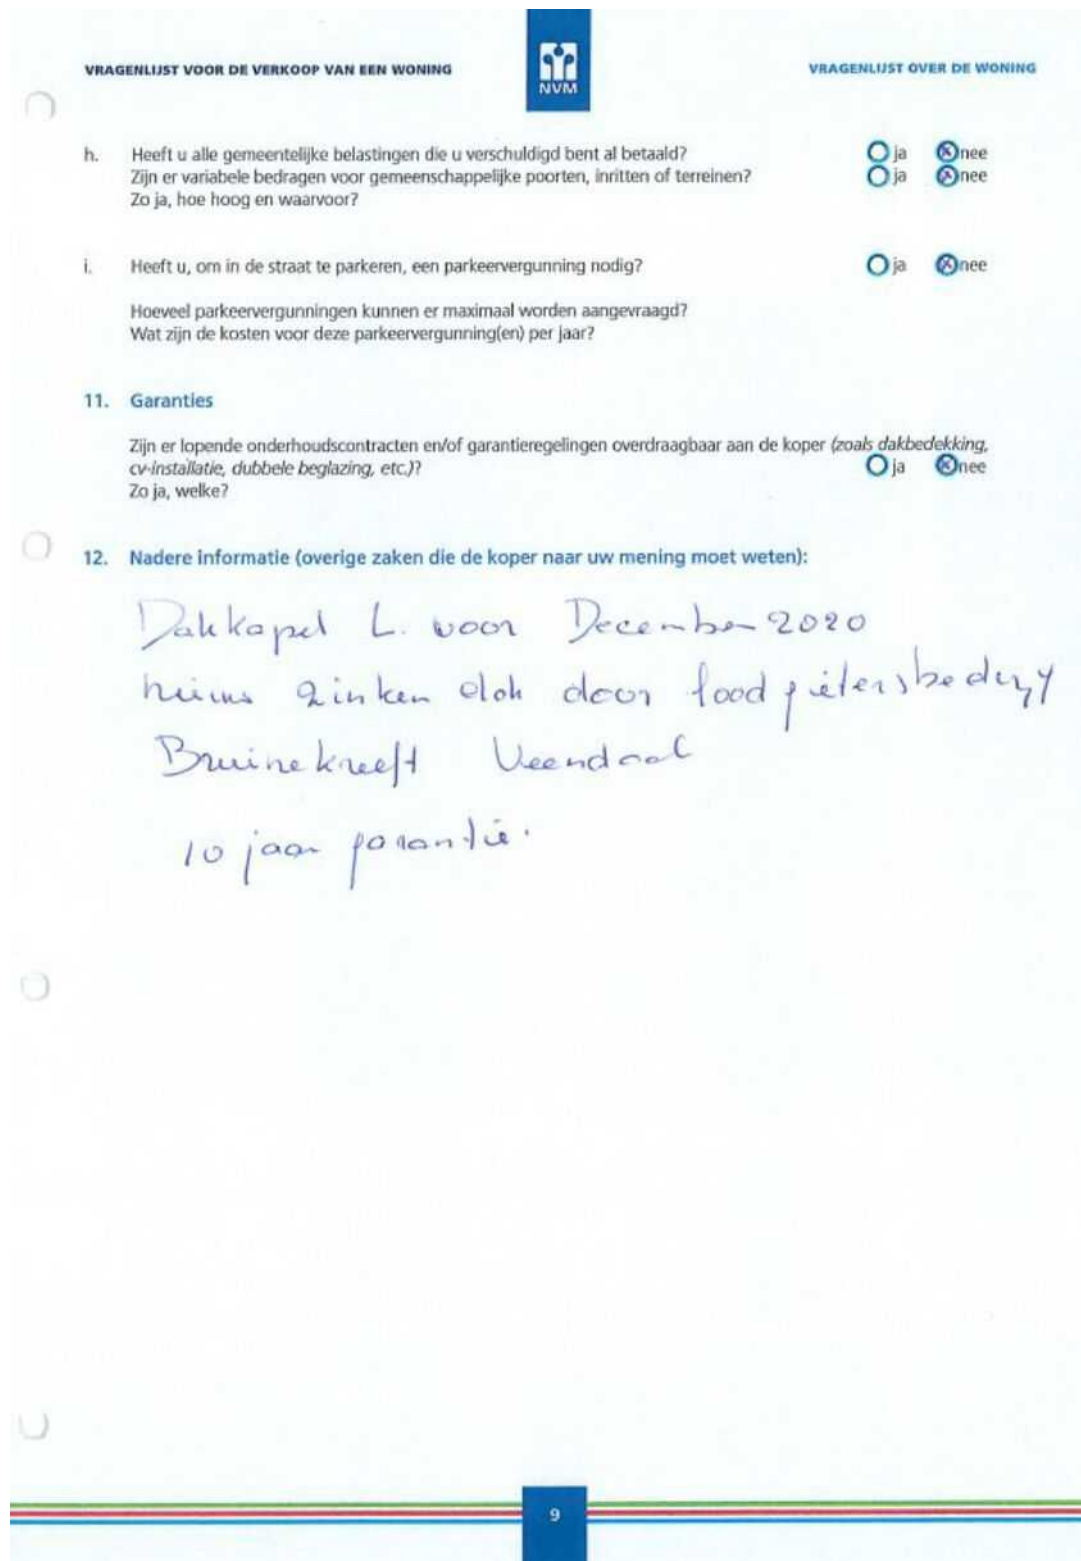 VRAGENLIJST VOOR DE VERKOOP VAN EEN WONING
NVM
VRAGENLIJST OVER DE WONING
h. Heeft u alle gemeentelijke belastingen die u verschuldigd bent al betaald? ja nee
Zijn er variabele bedragen voor gemeenschappelijke poorten, inritten of terreinen? ja nee
Zo ja, hoe hoog en waarvoor?
i. Heeft u, om in de straat te parkeren, een parkeervergunning nodig? ja nee
Hoeveel parkeervergunningen kunnen er maximaal worden aangevraagd?
Wat zijn de kosten voor deze parkeervergunning(en) per jaar?
11. Garanties
Zijn er lopende onderhoudscontracten en/of garantieregelingen overdraagbaar aan de koper (zoals dakbedekking,
cv-installatie, dubbele beglazing, etc.)? ja nee
Zo ja, welke?
12. Nadere informatie (overige zaken die de koper naar uw mening moet weten):
Dakkapel L. voor December 2020
zinken dak door loodgietersbedrijf
Bruinekreeft Veendaal
10 jaar garantie.
9